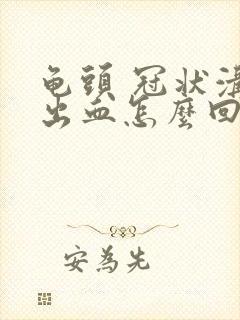 龟頭 冠状溝
出血怎麼回
安為先